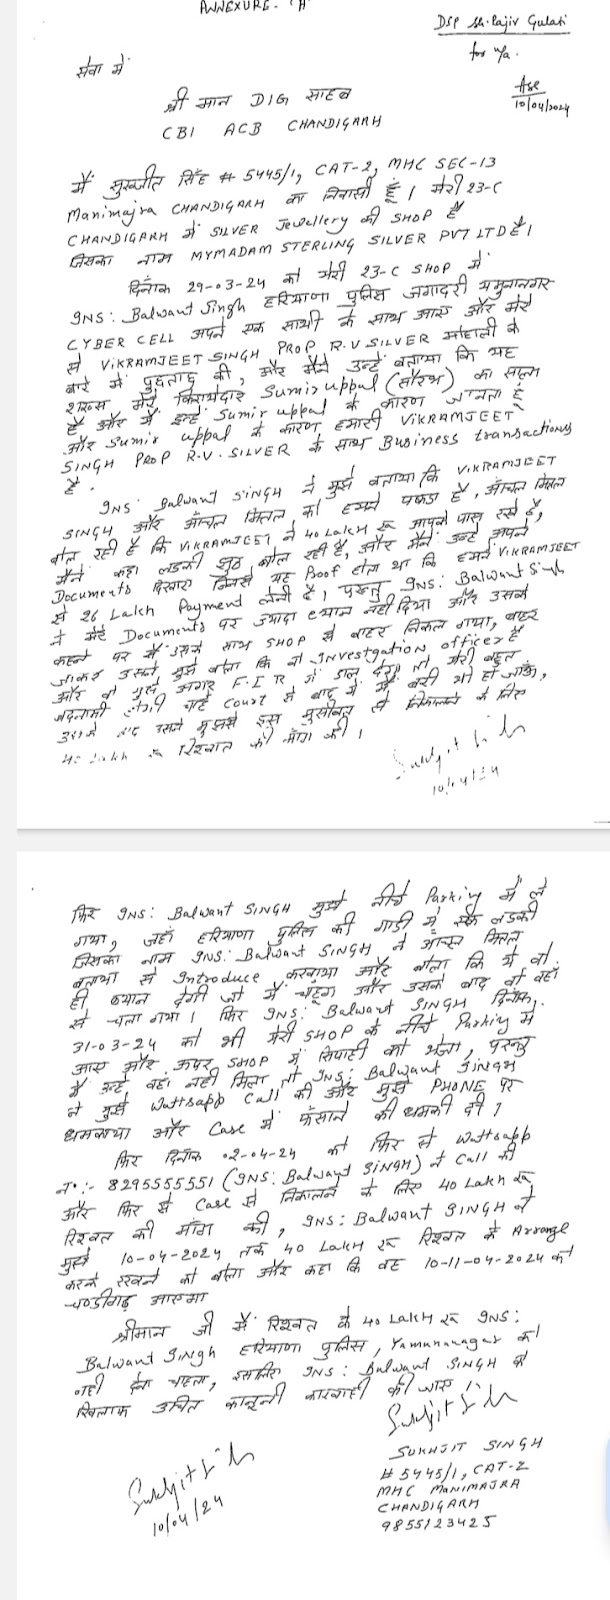 ANNEXURE - 'A'
DSP Sh. Rajiv Gulati
for n/a.
10/04/2024
सेवा में
श्री मान DIG साहब
CBI ACB CHANDIGARH
मैं सुखजीत सिंह # 5445/1, CAT-2, MHC SEC-13
Manimajra CHANDIGARH का निवासी हूँ। मेरी 23-C
CHANDIGARH में SILVER Jewellery की SHOP है
जिसका नाम MYMADAM STERLING SILVER PVT LTD है।
दिनांक 29-03-24 को मेरी 23-C SHOP में
INS: Balwant Singh हरियाणा पुलिस जगादरी यमुनानगर
CYBER CELL अपने एक साथी के साथ आए और मेरे
से VIKRAMJEET SINGH PROP R.V SILVER मोहाली के
बारे में पुछताछ की, और मैंने उन्हें बताया कि यह
शख्स मेरे किरायेदार Sumir uppal (सौरभ) का
है और मैं इन्हें Sumir uppal के कारण जानता हूं
और Sumir uppal के कारण हमारी VIKRAMJEET
SINGH PROP R.V. SILVER के साथ Business transactions
है.
INS: Balwant SINGH ने मुझे बताया कि VIKRAMJEET
SINGH और आँचल मित्तल को हमने पकड़ा है, आँचल मित्तल
बोल रही है कि VIKRAMJEET ने 40 Lakh रू आपके पास रखे हैं,
मैंने कहा लड़की झूठ बोल रही है, और मैंने उन्हें अपने
Documents दिखाए जिससे यह Proof होता था कि हमने VIKRAMJEET
से 26 Lakh Payment लेनी है, परन्तु INS: Balwant Singh
ने मेरे Documents पर ज्यादा ध्यान नहीं दिया और उसके
कहने पर मैं उसके साथ SHOP से बाहर निकल गया, बाहर
जाकर उसने मुझे बोला कि वो Investgation officer है
और वो मुझे अगर F.I.R में डाल देगा तो मेरी बहुत
बदनामी होगी चाहे Court से बाद में मैं बरी भी हो जाऊँ,
उसके बाद उसने मुझसे इस मुसीबत से निकालने के लिए
40 Lakh रू रिश्वत की माँग की।
Sukhjit Singh
10/04/24
फिर INS: Balwant SINGH मुझे नीचे Parking में ले
गया, जहाँ हरियाणा पुलिस की गाडी में एक लडकी
जिसका नाम INS: Balwant SINGH ने आंचल मित्तल
बताया से Introduce करवाया और बोला कि ये वो
ही बयान देगी जो मैं चाहूंगा और उसके बाद वो वहाँ
से चला गया। फिर INS: Balwant SINGH दिनांक
31-03-24 को भी मेरी SHOP के नीचे Parking में
आए और ऊपर SHOP में सिपाही को भेजा, परन्तु
मैं उन्हें वहाँ नहीं मिला तो INS: Balwant SINGH
ने मुझे Wattsapp Call की और मुझे PHONE पर
धमकाया और Case में फँसाने की धमकी दी।
फिर दिनांक 02-04-24 को फिर से Wattsapp
न०:- 8295555551 (INS: Balwant SINGH) ने Call की
और फिर से Case से निकालने के लिए 40 Lakh रू
रिश्वत की माँग की, INS: Balwant SINGH ने
मुझे 10-04-2024 तक 40 Lakh रू रिश्वत के Arrange
करके रखने को बोला और कहा कि वह 10-11-04-2024 को
चण्डीगढ़ आएगा
श्रीमान जी मैं रिश्वत के 40 Lakh रू INS:
Balwant Singh हरियाणा पुलिस, Yamunanagar को
नहीं देना चाहता, इसलिए INS: Balwant SINGH के
खिलाफ उचित कानूनी कारवाही की जाए।
Sukhjit Singh
SUKHJIT SINGH
# 5445/1, CAT-2
MHC MANIMAJRA
CHANDIGARH
9855123425
Sukhjit Singh
10/04/24